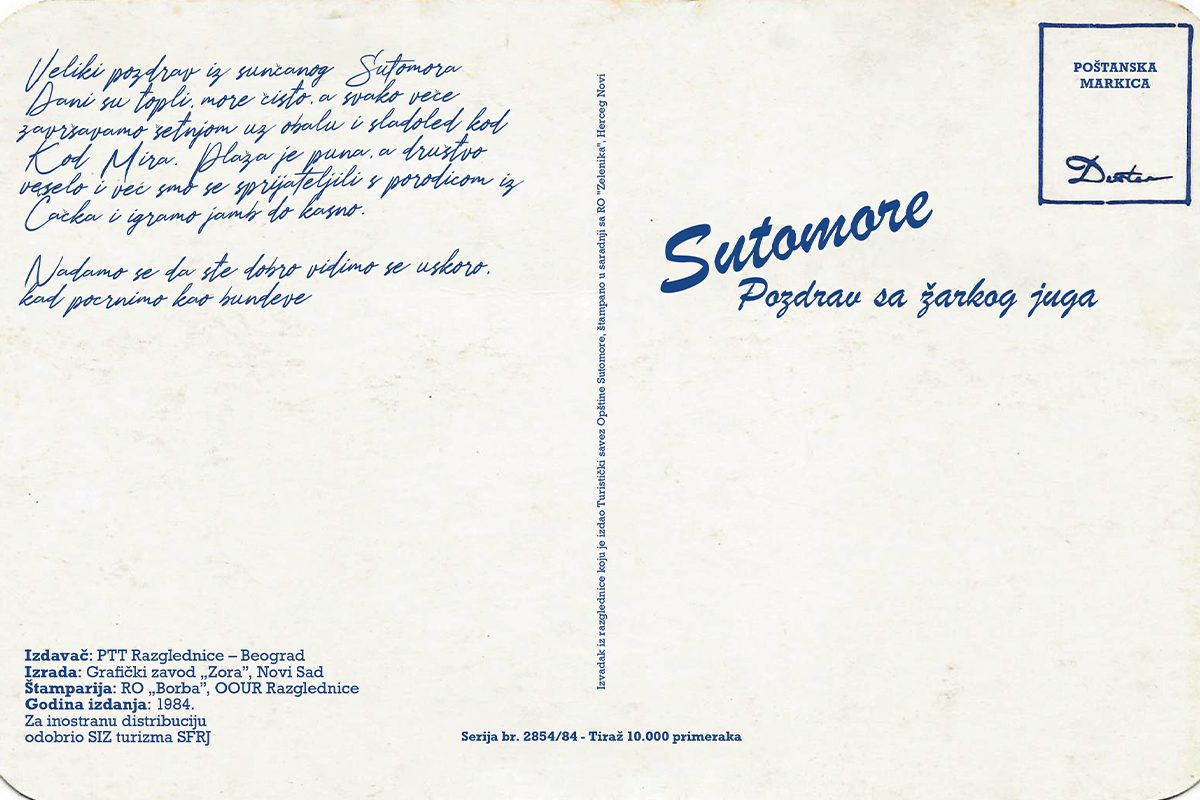 Veliki pozdrav iz suncanog Sutomora
Dani su topli, more cisto, a svako veče
završavamo šetnjom uz obalu i sladoled kod
Kod Mira. Plaza je puna, a društvo
veselo i već smo se sprijateljili s porodicom iz
Čačka i igramo jamb do kasno.
Nadamo se da ste dobro vidimo se uskoro,
kad pocrnimo kao bundeve
Izdavač: PTT Razglednice – Beograd
Izrada: Grafički zavod „Zora”, Novi Sad
Štamparija: RO „Borba”, OOUR Razglednice
Godina izdanja: 1984.
Za inostranu distribuciju
odobrio SIZ turizma SFRJ
Serija br. 2854/84 - Tiraž 10.000 primeraka
Izvadak iz razglednice koju je izdao Turistički savez Opštine Sutomore, štampano u saradnji sa RO "Zelenika", Herceg Novi
POŠTANSKA
MARKICA
Sutomore
Pozdrav sa žarkog juga